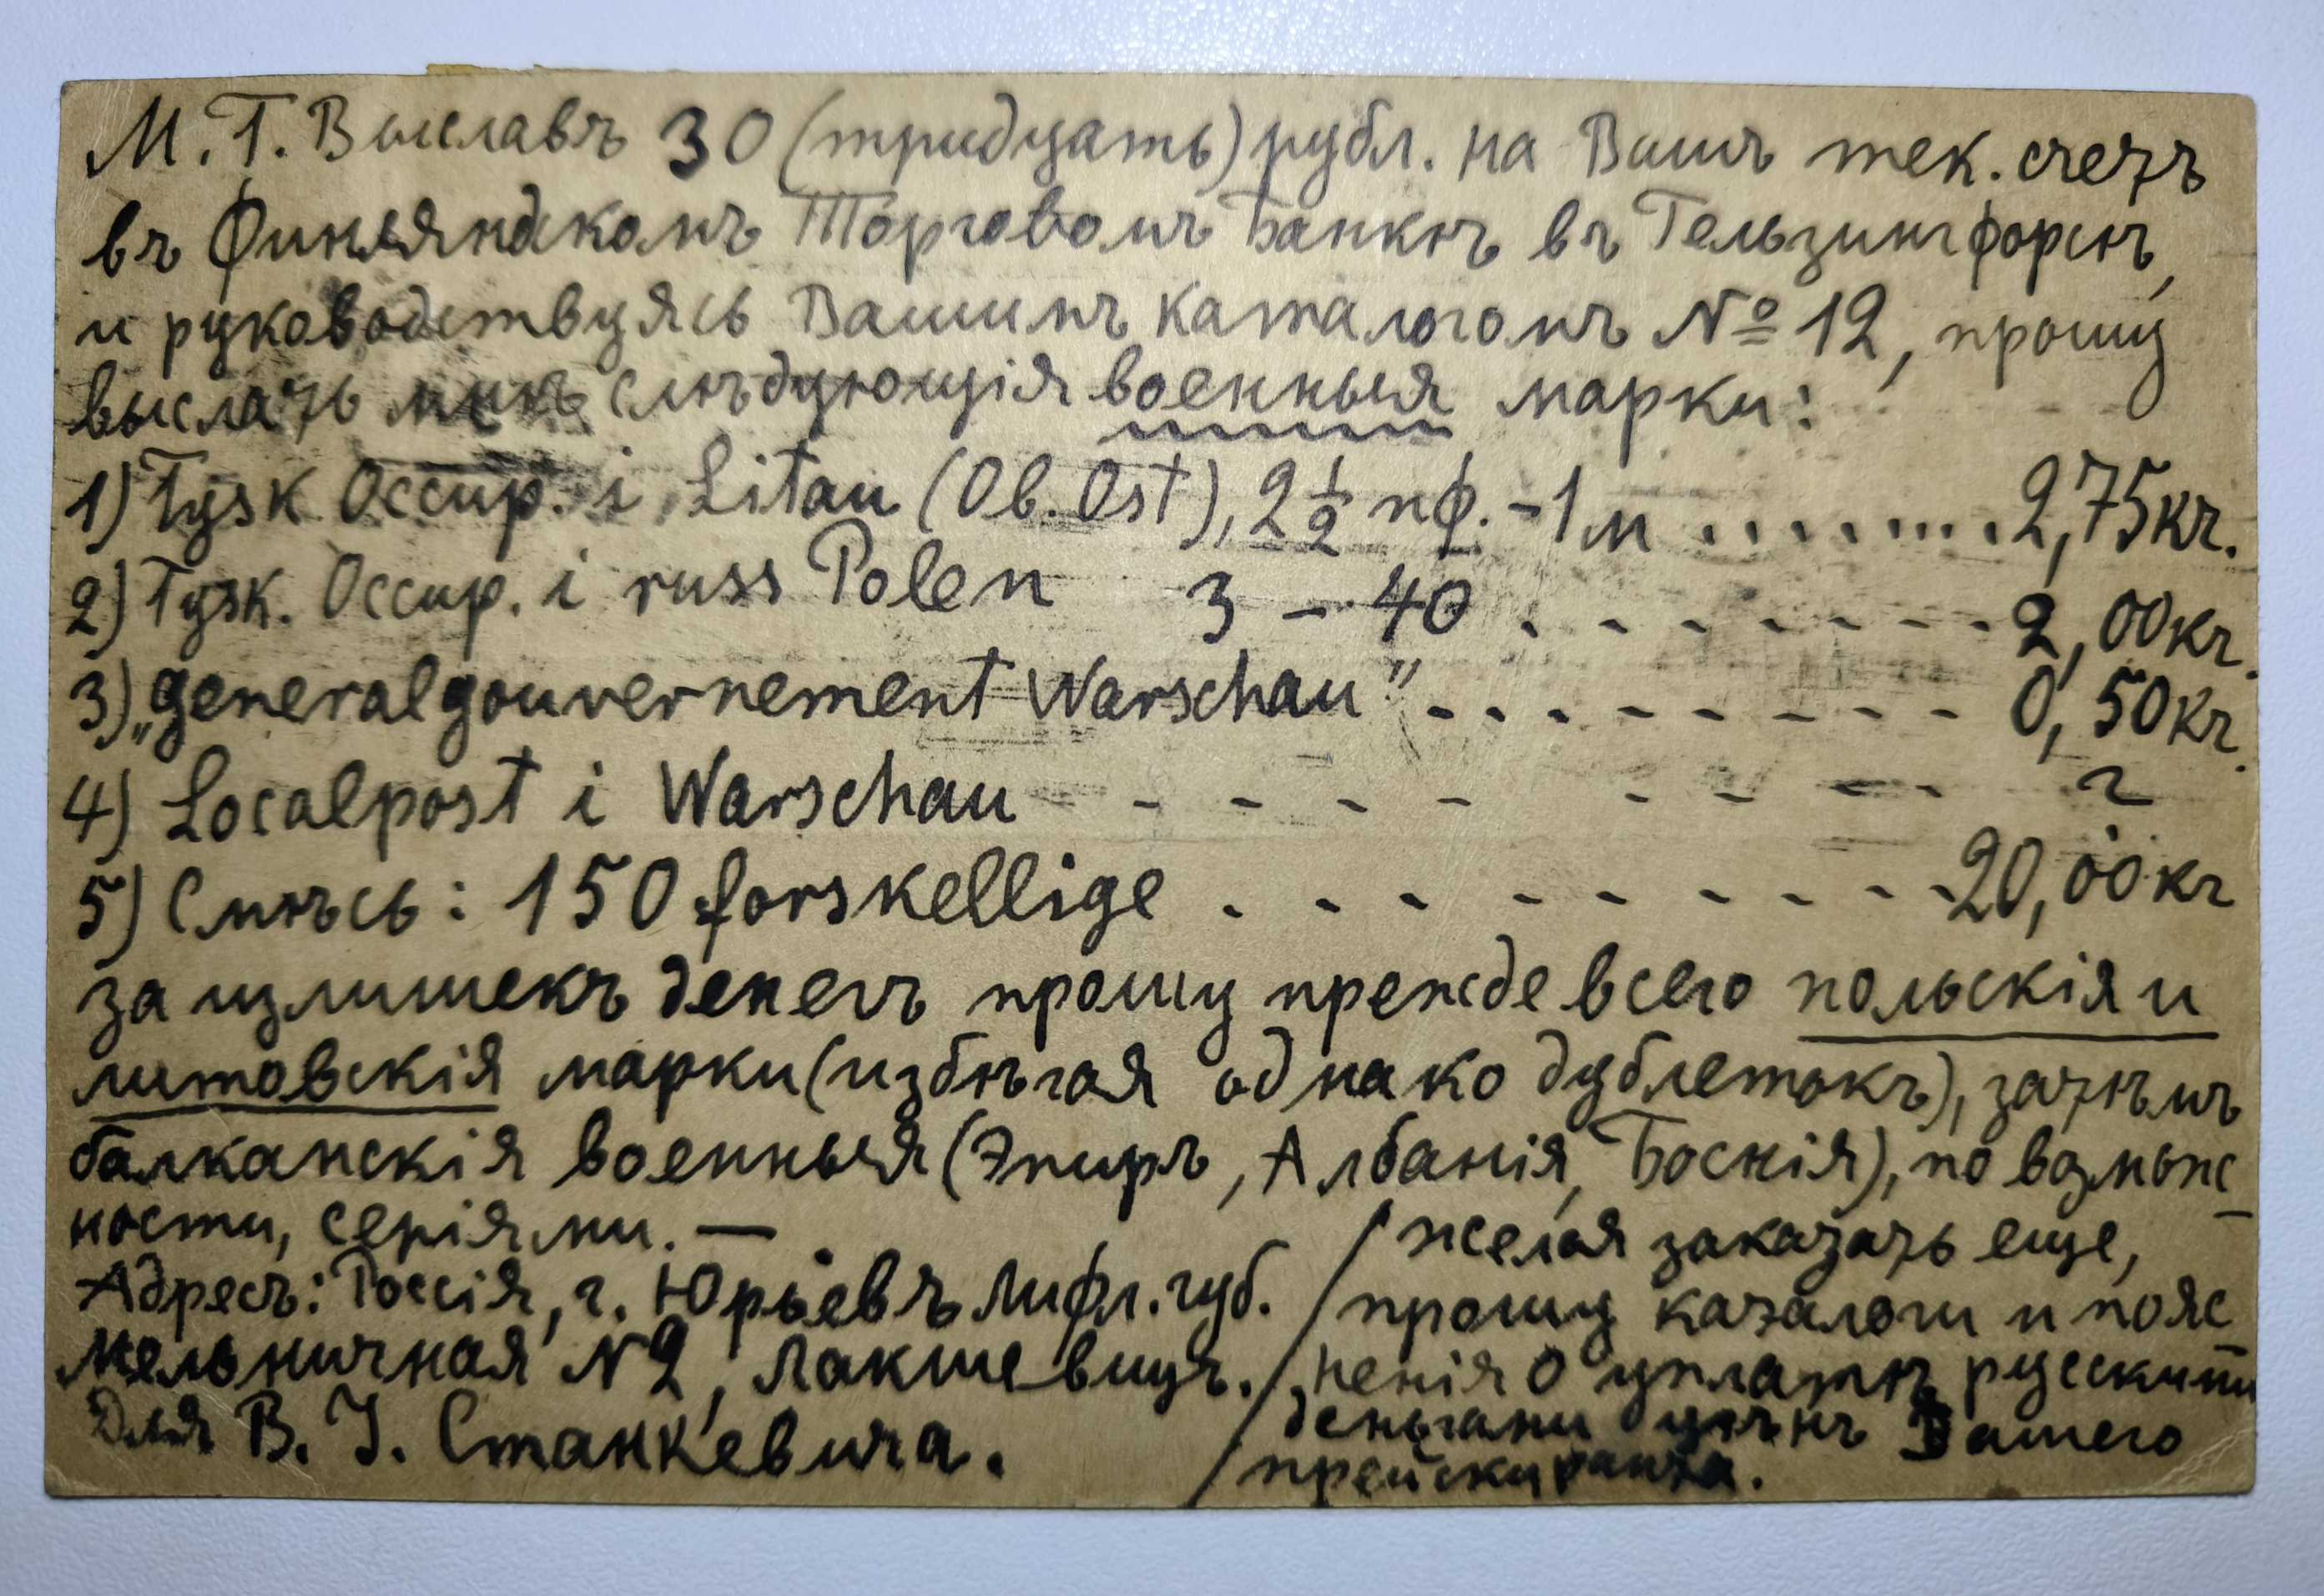 М. Г. Выславъ 30 (тридцать) рубл. на Вашъ тек. счетъ
въ Финляндскомъ Торговомъ Банкѣ въ Гельзингфорсѣ,
и руководствуясь Вашимъ каталогомъ № 12, прошу
выслать мнѣ слѣдующія военныя марки:
1) Tysk Occup. i Litau (Ob. Ost), 2 1/2 пф. - 1 м ......... 2,75 кр.
2) Tysk. Occup. i russ Polen 3 - 40 . - - - - - - - 2,00 кр.
3) „Generalgouvernement Warschau" - - - - - - - - - 0,50 кр.
4) Localpost i Warschau - - - - - - - - - ?
5) Смѣсь: 150 forskellige . - - - - - - - - 20,00 кр
за излишекъ денегъ прошу прежде всего польскія и
литовскія марки (избѣгая однако дублетокъ), затѣмъ
балканскія военныя (Эпиръ, Албанія, Боснія), по возмож-
ности, серіями. —
Адресъ: Россія, г. Юрьевъ Лифл. губ.
Мельничная № 2, Лакшевицъ.
Для В. І. Станкевича.
желая заказать еще,
прошу каталоги и пояс
ненія о уплатѣ русскими
деньгами цѣнъ Вашего
прейскуранта.